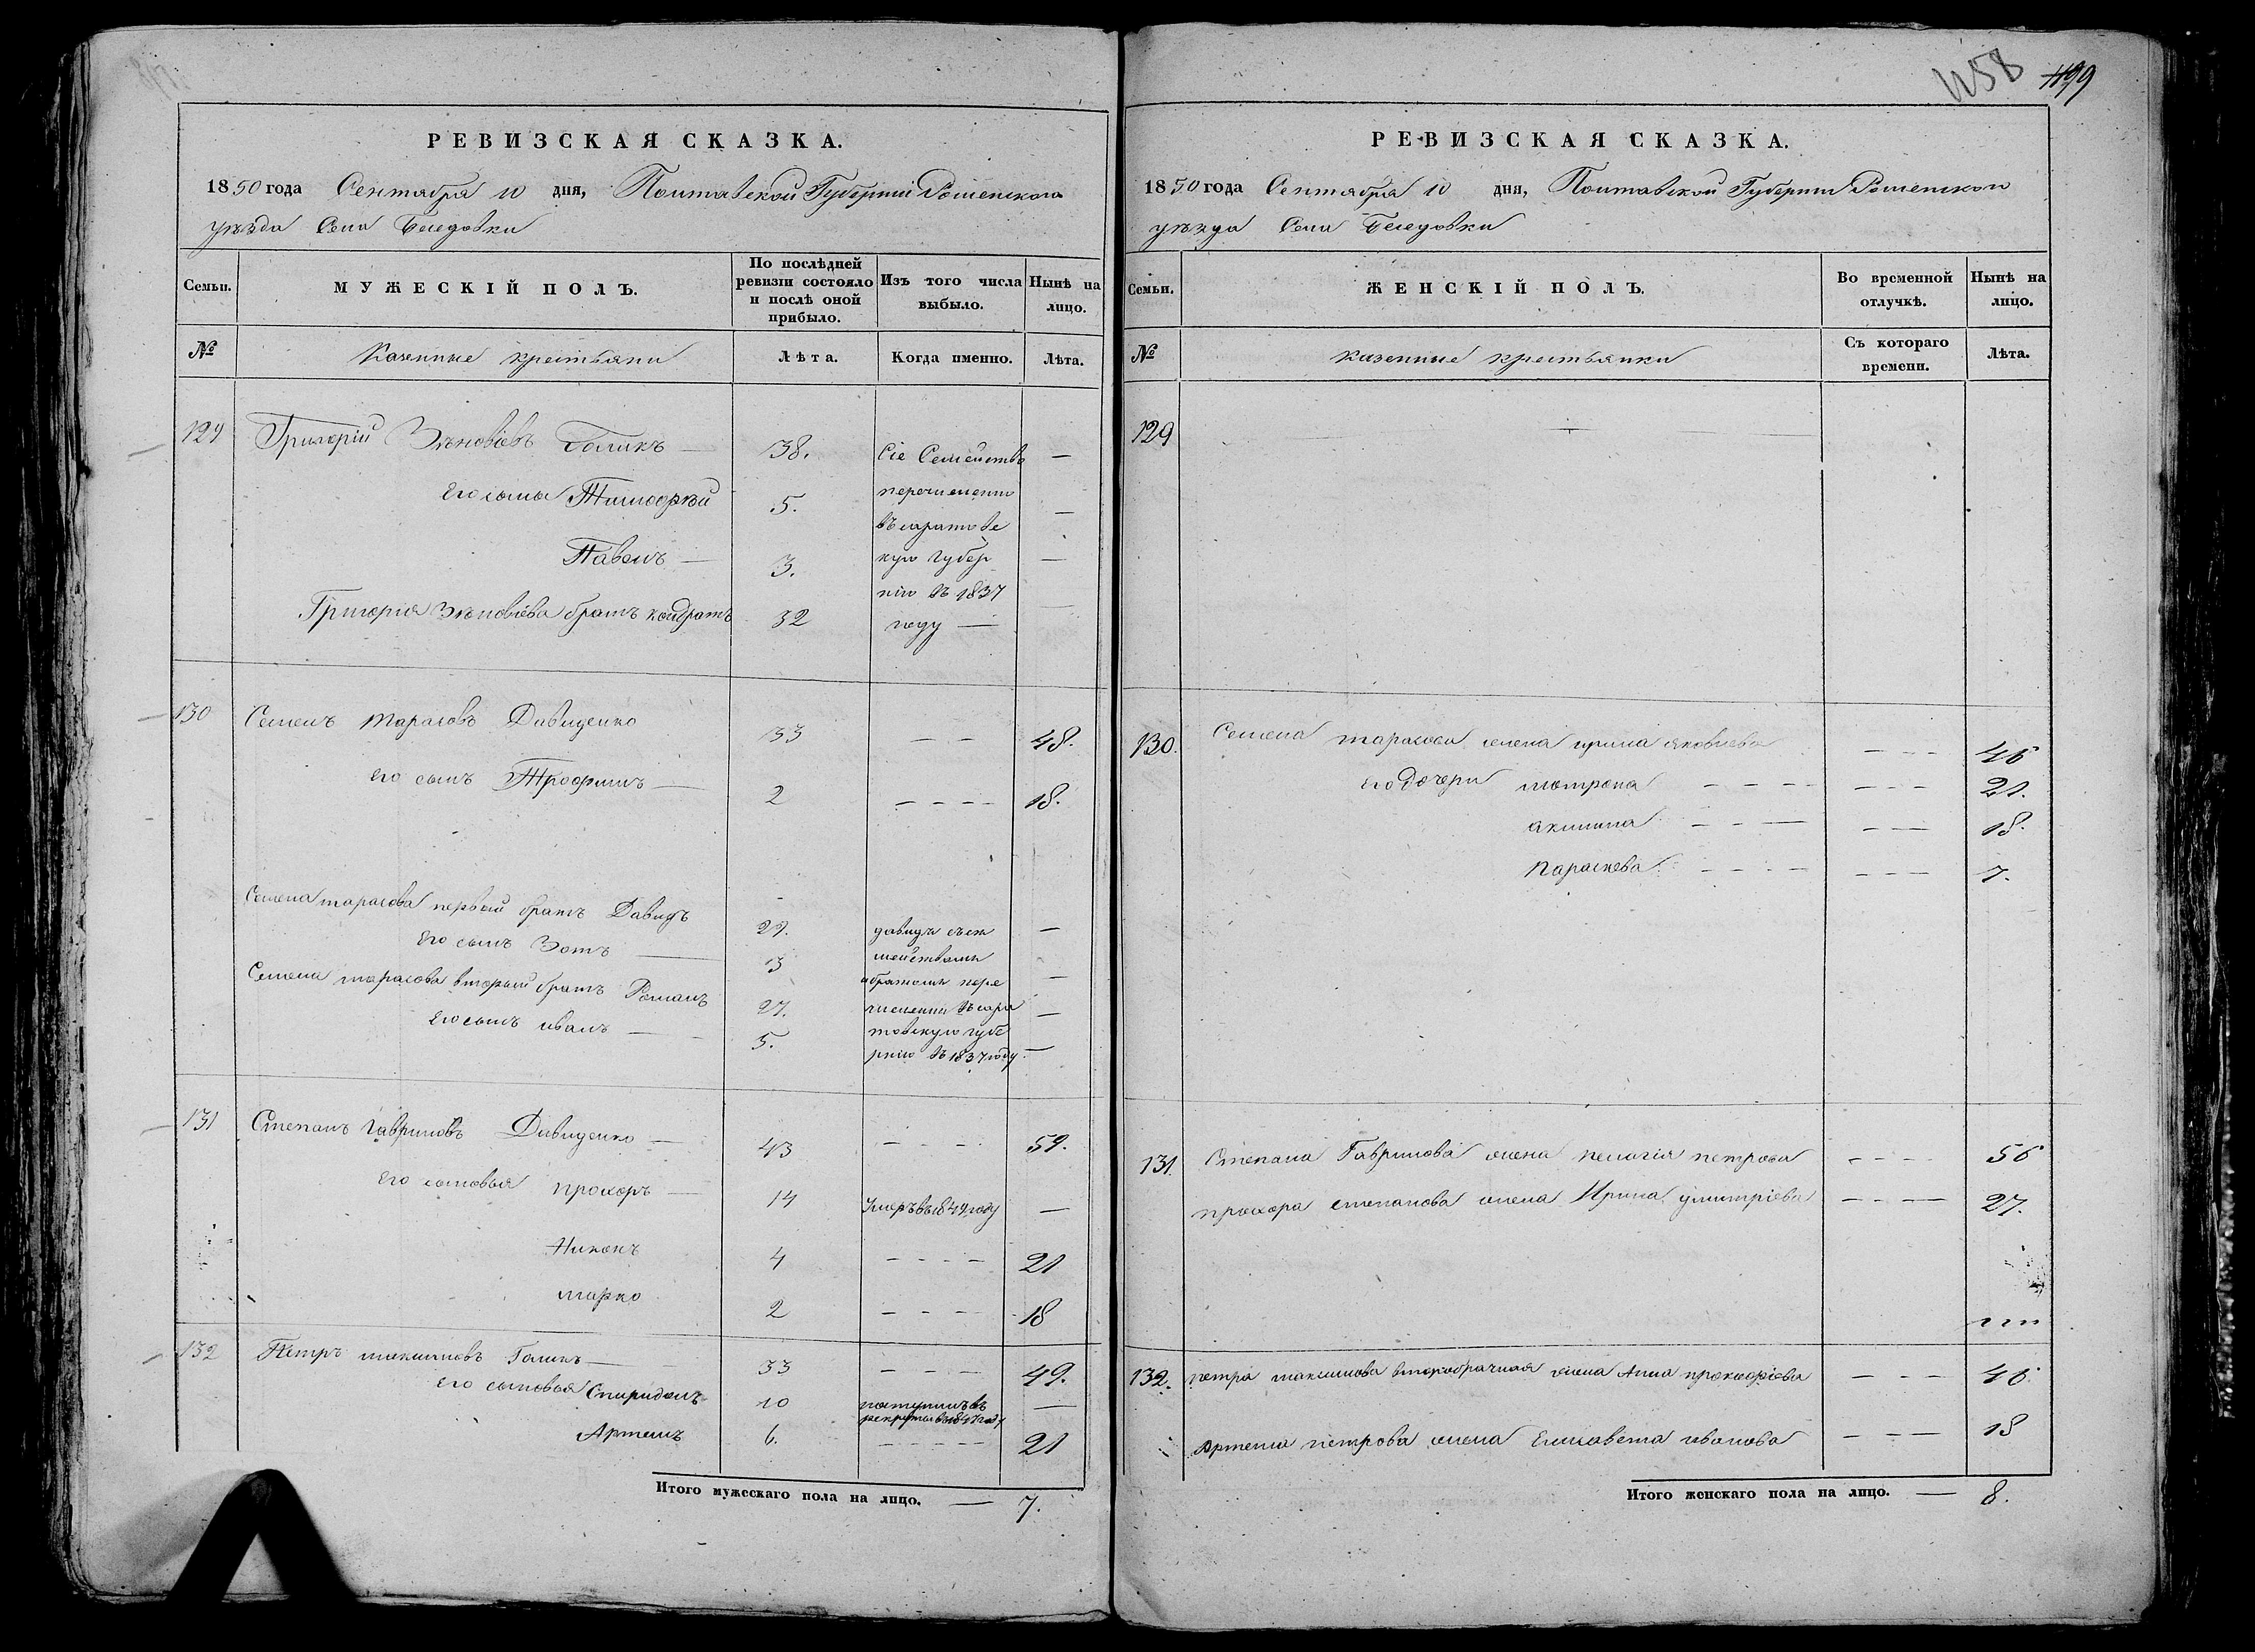 1158 1199
РЕВИЗСКАЯ СКАЗКА.
1850 года Сентября 10 дня, Полтавской Губерніи Роменского
уѣзда Села Беседовки
Семьи. МУЖЕСКІЙ ПОЛЪ. По послѣдней ревизіи состояло и послѣ оной прибыло. Изъ того числа выбыло. Нынѣ на лицо.
№ Казенные крестьяни Лѣта. Когда именно. Лѣта.
129 Григорій Зѣновіевъ Голикъ — 38. Сіе Семейство —
перечислено
Его сыны Тимоѳѣй 5. —
въ саратовс
Павелъ — 3. кую губер —
нію въ 1837
Григорія Зѣновіева братъ кондратъ 32 году — —
130 Семенъ тарасовъ Давиденко 33 — — 48.
Его сынъ Трофимъ — 2 — — — — 18.
Семена тарасова первый братъ Давидъ 29. давидъ съсе —
Его сынъ Зотъ — 3 мействомъ
Семена тарасова вторый братъ Романъ 27. ибратомъ пере —
численны въсара —
Его сынъ иванъ — 5. товскую губе
рнію въ 1837 году. —
131 Степанъ Гавриловъ Давиденко — 43 — — — 59.
Его сыновья прохоръ — 14 Умеръ въ 1849 году —
Никонъ 4 — — — — 21
марко 2 — — — — 18
132 Петръ максимовъ Голикъ — 33 — — — 49.
Его сыновья Спиридонъ 10 поступилъ въ —
рекруты въ 1847 году
Артемъ 6. — — — — — 21
Итого мужескаго пола на лицо. — 7.
РЕВИЗСКАЯ СКАЗКА.
1850 года Сентября 10 дня, Полтавской Губерніи Роменского
уѣзда Села Беседовки
Семьи. ЖЕНСКІЙ ПОЛЪ. Во временной отлучкѣ. Нынѣ на лицо.
№ казенные крестьянки Съ котораго времени. Лѣта.
129 —
130. Семена тарасова жена ирина яковлева — — — 46
Его дочери мотрона — — — — — — — 21.
акилина — — — — — 18.
Параскева — — — — — — — 7.
131. Степана Гаврилова жена пелагія петрова — — — 56
прохора степанова жена Ирина дмитріева — — — 27.
132. петра максимова второбрачная жена Анна прокофіева — — — 46
Артема петрова жена Елисавета иванова — — — 18
Итого женскаго пола на лицо. — 8.